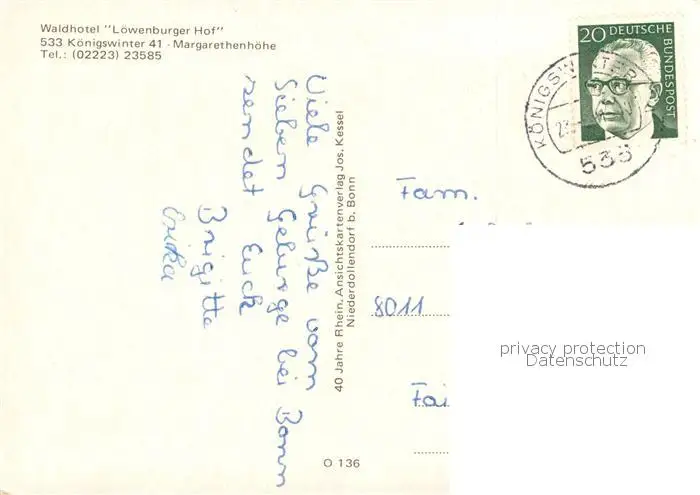 Waldhotel "Löwenburger Hof"
533 Königswinter 41 · Margarethenhöhe
Tel.: (02223) 23585
20 DEUTSCHE
BUNDESPOST
KÖNIGSWINTER
533
Viele Grüße vom
Sieben Gebirge bei Bonn
sendet Euch
Brigitte
Erika
40 Jahre Rhein. Ansichtskartenverlag Jos. Kessel
Niederdollendorf b. Bonn
Fam.
8011
privacy protection
Datenschutz
O 136